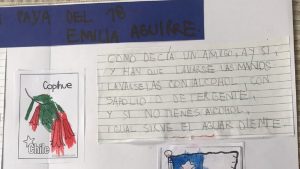 PAYA DEL 18 -
EMILIA AGUIRRE
COMO DECÍA UN AMIGO, AY SÍ,
Y HAY QUE LAVARSE LAS MANOS
LAVARSELAS CON ALCOHOL, CON
SAPOLIO O DETERGENTE,
Y SI NO TIENES ALCOHOL,
IGUAL SIRVE EL AGUAR DIENTE
Copihue
Chile